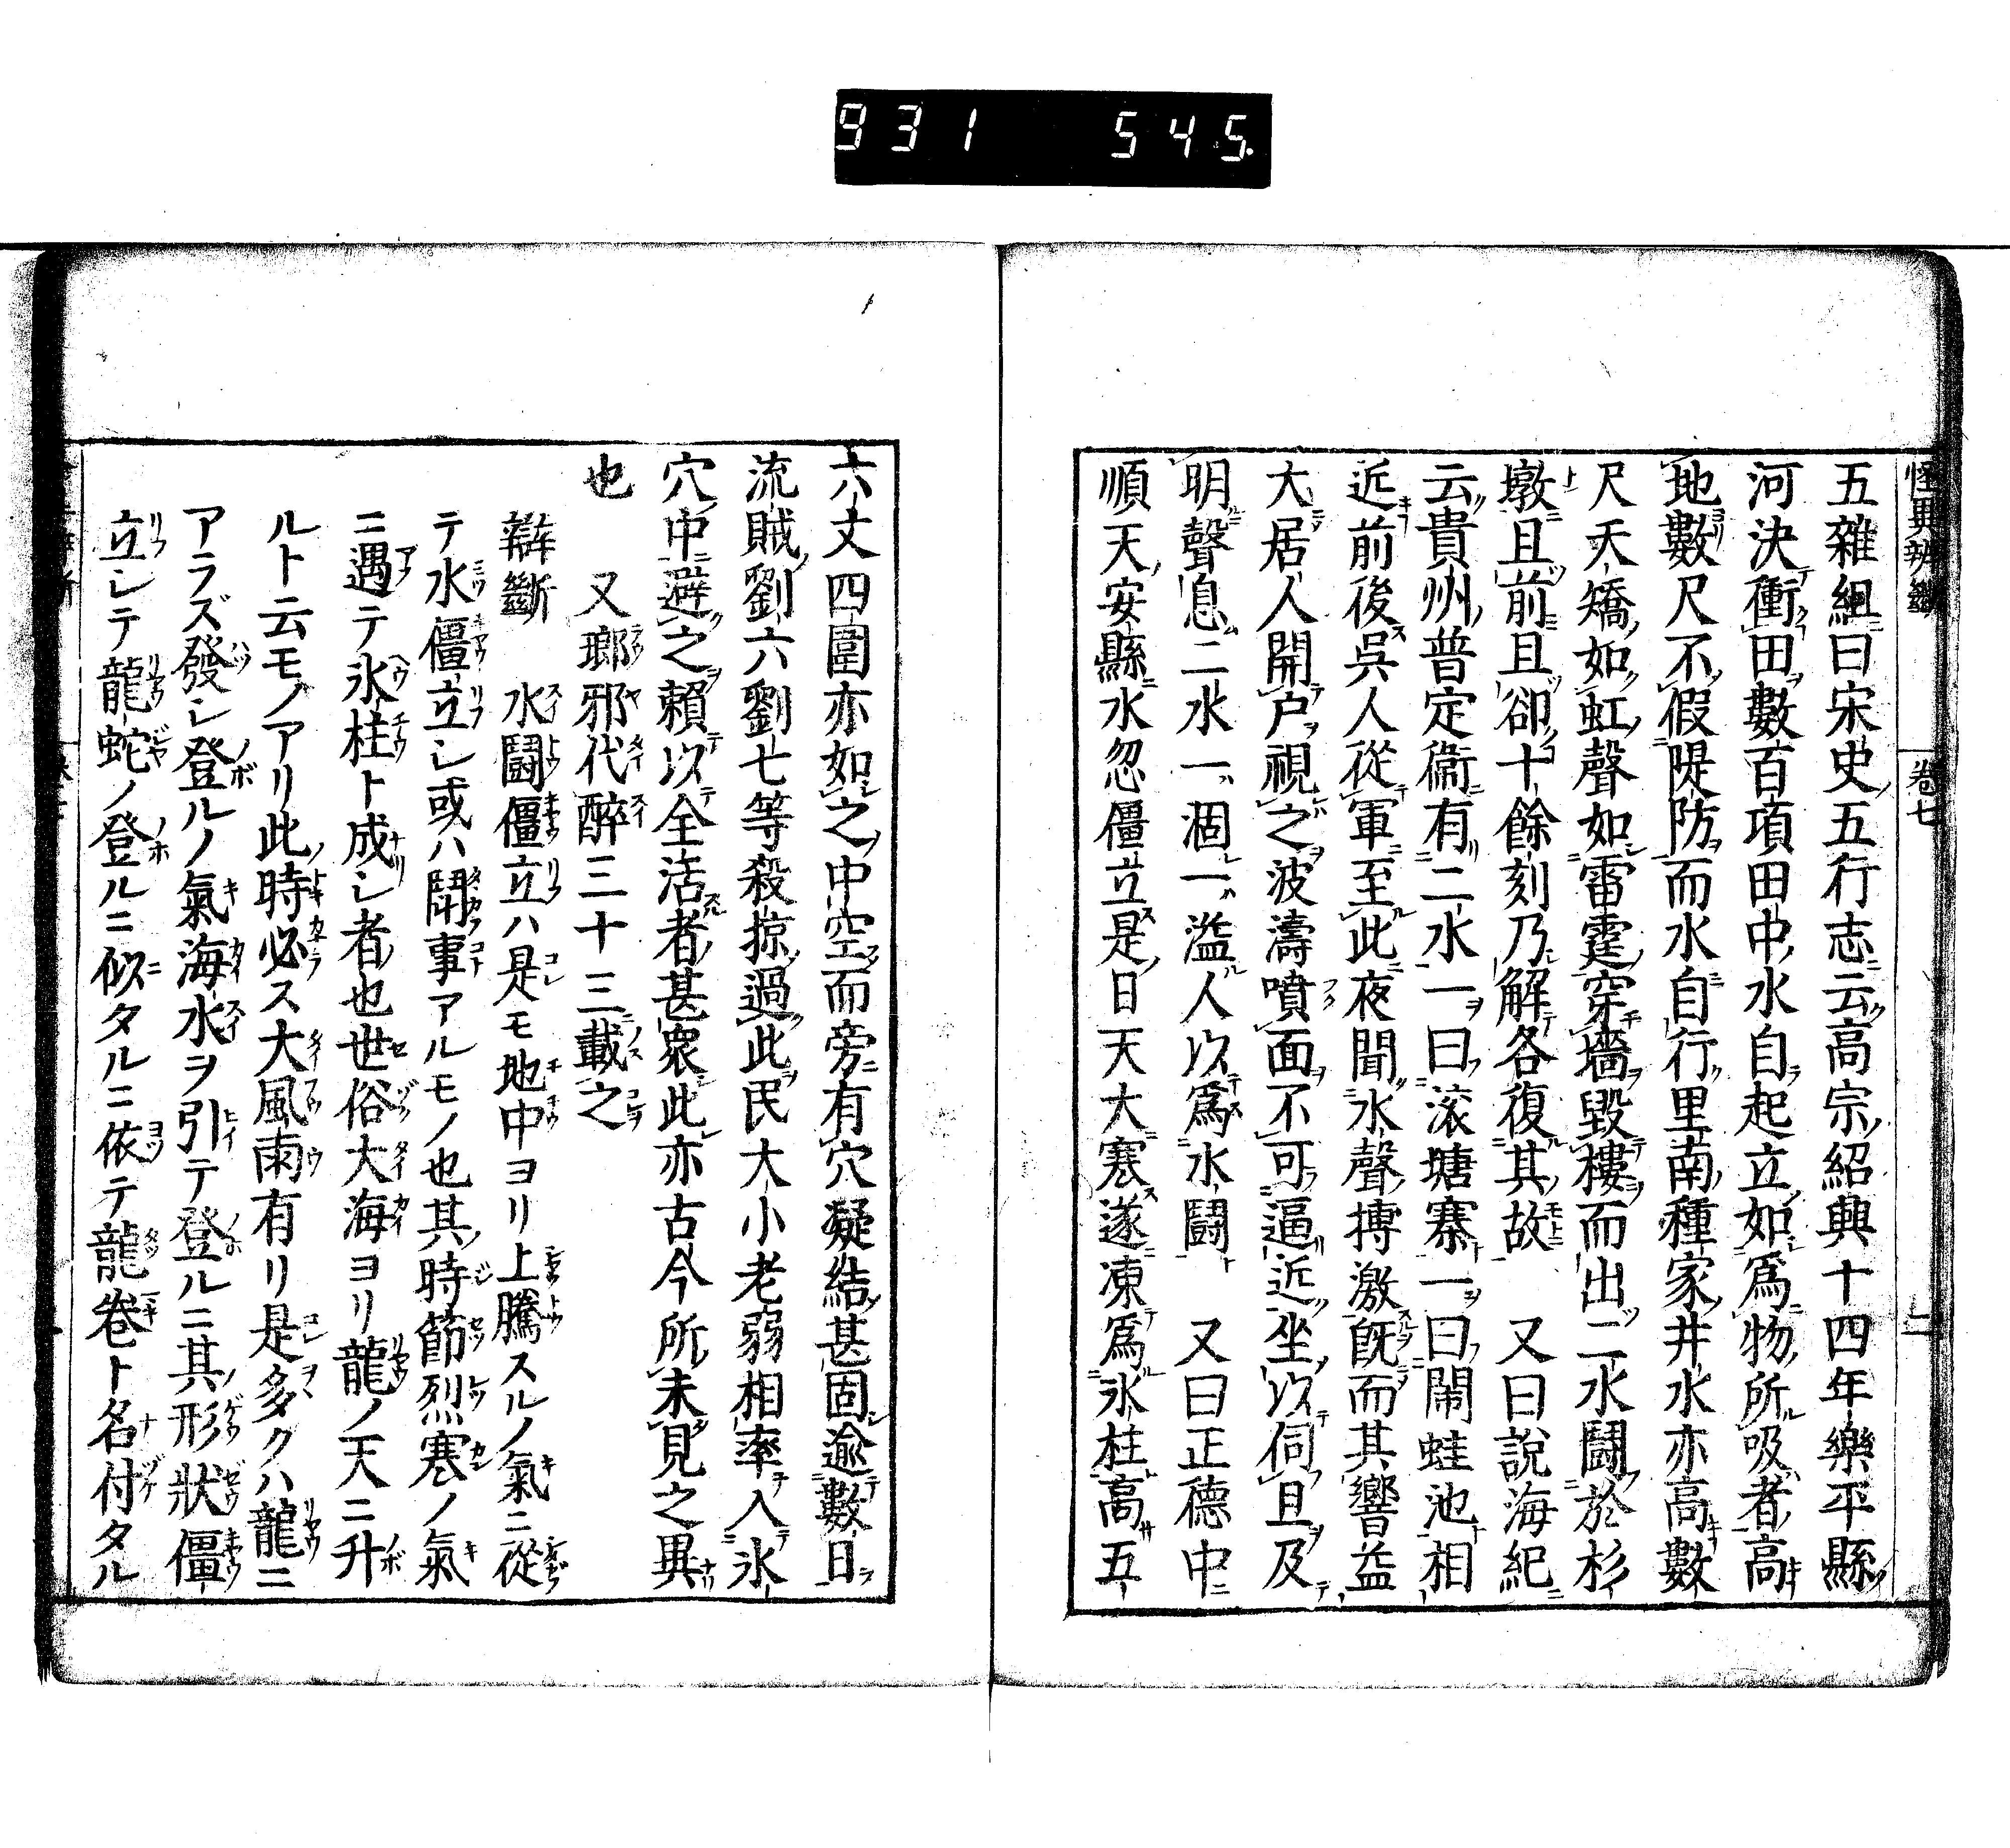 931 545.
怪異辨斷 卷七 二
五雜組曰宋史五行志云高宗紹興十四年樂平縣
河決衝田數百項田中水自起立如爲物所吸者高
地數尺不假隄防而水自行里南種家井水亦高數
尺夭矯如虹聲如雷霆穿墻毀樓而出二水鬪於杉
墩且前且卻十餘刻乃解各復其故 又曰説海紀
云貴州普定衞有二水一曰滚塘寨一曰鬧蛙池相
近前後吳人從軍至此夜聞水聲摶激既而其響益
大居人開户視之波濤噴面不可逼近坐以伺旦及
明聲息二水一涸一溢人以爲水鬪 又曰正德中
順天安縣水忽僵立是日天大寒遂凍爲氷柱高五
六丈四圍亦如之中空而旁有穴凝結甚固逾數日
流賊劉六劉七等殺掠過此民大小老弱相率入氷
穴中避之賴以全活者甚衆此亦古今所未見之異
也 又瑯邪代醉三十三載之
辯斷 水鬪僵立ハ是モ地中ヨリ上騰スルノ氣ニ從
テ水僵立シ或ハ鬪事アルモノ也其時節烈寒ノ氣
ニ遇テ氷柱ト成シ者也世俗大海ヨリ龍ノ天ニ升
ルト云モノアリ此時必ス大風雨有リ是多クハ龍ニ
アラズ發シ登ルノ氣海水ヲ引テ登ルニ其形狀僵
立シテ龍蛇ノ登ルニ似タルニ依テ龍卷ト名付タル